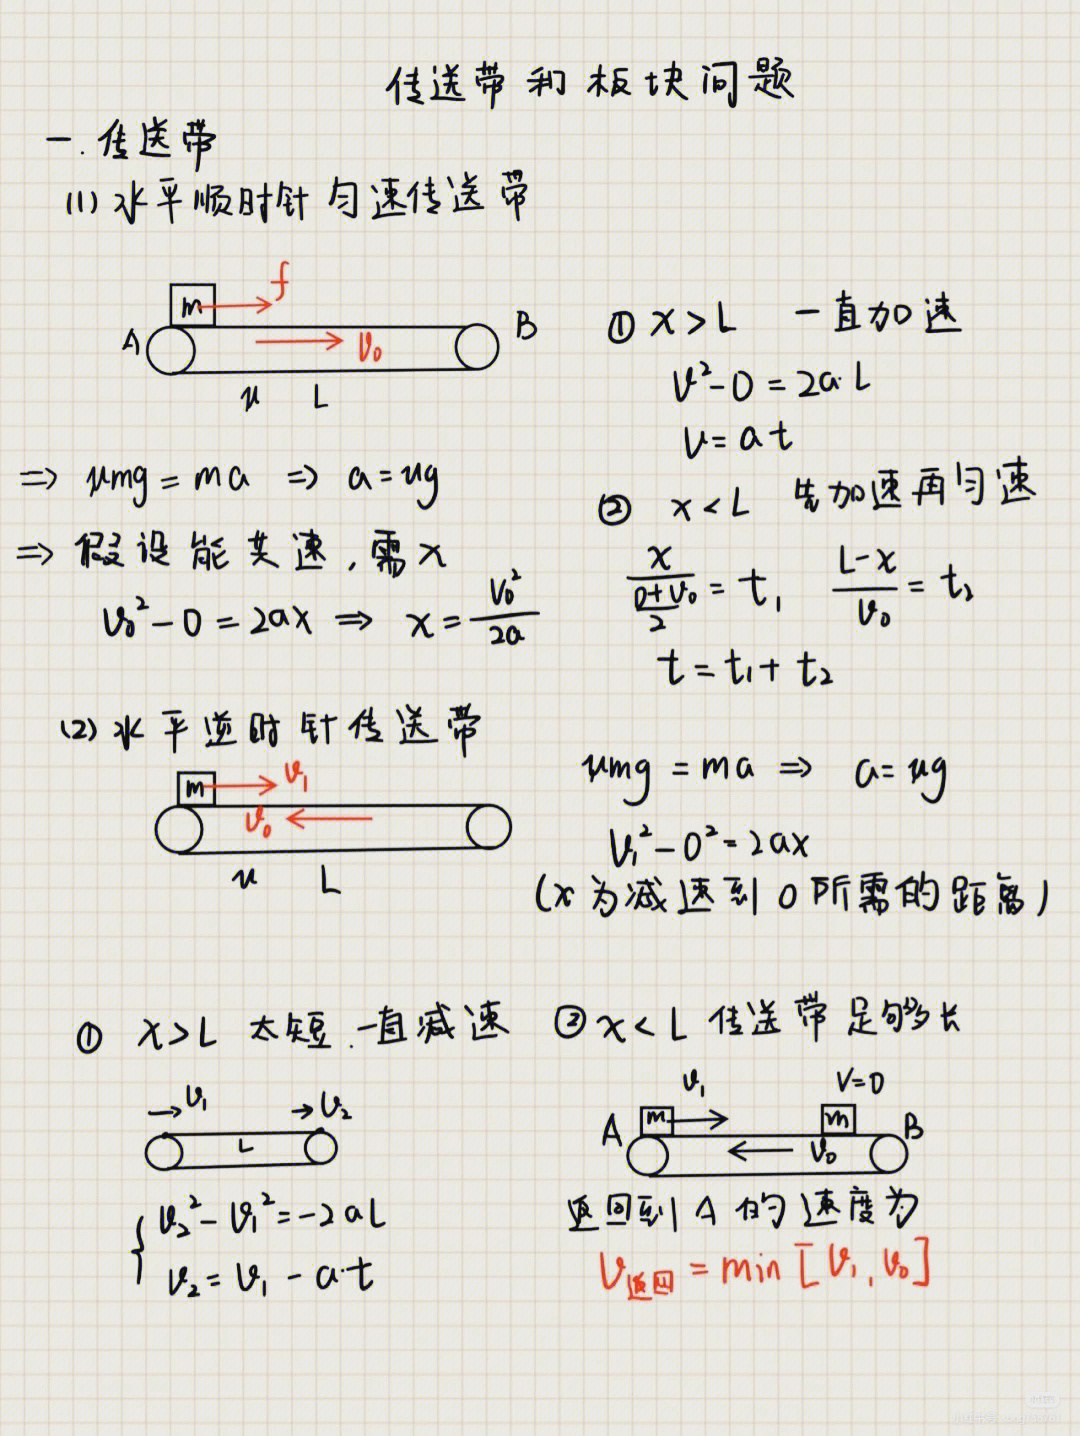 传送带和板块问题
一.传送带
(1)水平顺时针匀速传送带
m f
A v₀ B
μ L
⇒ μmg=ma ⇒ a=μg
⇒ 假设能共速,需x
v₀²-0=2ax ⇒ x=V₀²/2a
① x>L 一直加速
v²-0=2a·L
v=at
② x<L 先加速再匀速
x/((0+v₀)/2)=t₁ (L-x)/v₀=t₂
t=t₁+t₂
(2)水平逆时针传送带
m v₁
v₀
μ L
μmg=ma ⇒ a=μg
V₁²-0²=2ax
(x为减速到0所需的距离)
① x>L 太短.一直减速
v₁ v₂
L
v₂²-v₁²=-2aL
v₂=v₁-a·t
② x<L 传送带足够长
v₁ V=0
A m m B
v₀
返回到A的速度为
V返回=min[v₁,v₀]